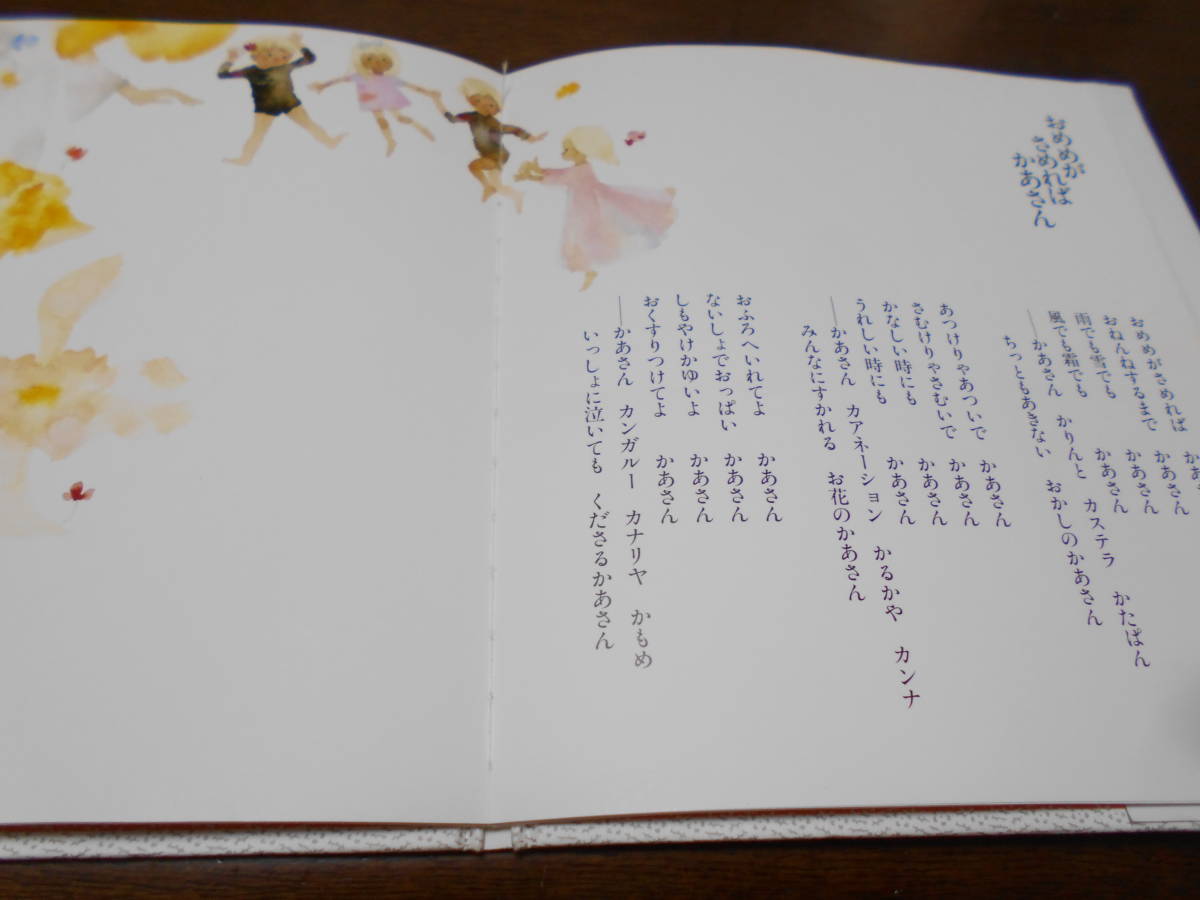 おめめが
さめれば
かあさん
おめめがさめれば　かあ
おねんねするまで　かあさん
雨でも雪でも　かあさん
風でも霜でも　かあさん
――かあさん　かりんと　カステラ　かたぱん
ちっともあきない　おかしのかあさん
あつけりゃあついで　かあさん
さむけりゃさむいで　かあさん
かなしい時にも　かあさん
うれしい時にも　かあさん
――かあさん　カアネーション　かるかや　カンナ
みんなにすかれる　お花のかあさん
おふろへいれてよ　かあさん
ないしょでおっぱい　かあさん
しもやけかゆいよ　かあさん
おくすりつけてよ　かあさん
――かあさん　カンガルー　カナリヤ　かもめ
いっしょに泣いても　くださるかあさん